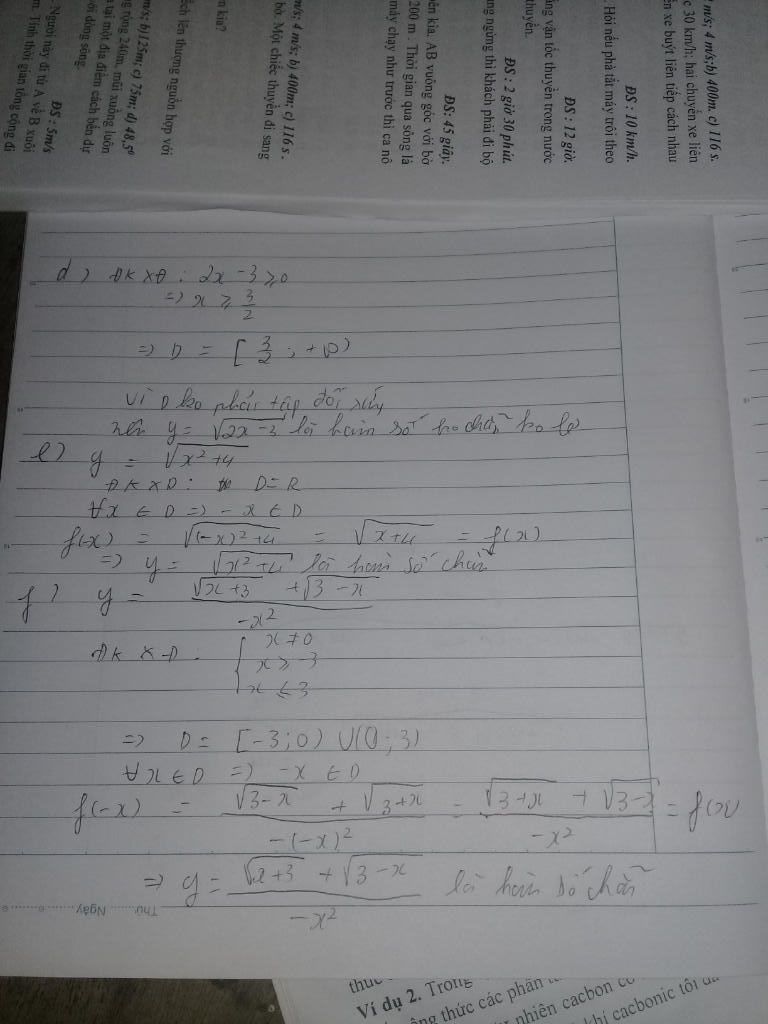 m/s; 4 m/s; b) 400m. c) 116 s.
30 km/h; hai chuyến xe liên
xe buýt liên tiếp cách nhau
ĐS : 10 km/h.
Hỏi nếu phà tắt máy trôi theo
ĐS : 12 giờ.
vận tốc thuyền trong nước
thuyền.
ĐS : 2 giờ 30 phút.
ngừng thì khách phải đi bộ
ĐS: 45 giây.
kia. AB vuông góc với bờ
200 m . Thời gian qua sông là
máy chạy như trước thì ca nô
m/s; 4 m/s; b) 400m; c) 116 s .
bờ. Một chiếc thuyền đi sang
kia?
lên thượng nguồn hợp với
m/s; b)125m; c) 75m; d) 48,5⁰
rộng 240m, mũi xuồng luôn
tại một địa điểm cách bến dự
với dòng sông.
ĐS : 5m/s
Người này đi từ A về B xuôi
Tính thời gian tổng cộng đi
d) ĐK XĐ : 2x - 3 ≥ 0
=> x ≥ 3/2
=> D = [ 3/2 ; +∞)
Vì D ko phải tập đối xứng
nên y = √(2x-3) là hàm số ko chẵn ko lẻ
e) y = √(x²+4)
ĐK XĐ : D = R
∀x ∈ D => -x ∈ D
f(-x) = √((-x)²+4) = √(x+4) = f(x)
=> y = √(x²+4) là hàm số chẵn
f) y = (√(x+3) + √(3-x)) / -x²
ĐK XĐ : { x ≠ 0
x ≥ -3
x ≤ 3
=> D = [-3;0) ∪ (0;3)
∀x ∈ D => -x ∈ D
f(-x) = (√(3-x) + √(3+x)) / -(-x)² = (√(3+x) + √(3-x)) / -x² = f(x)
=> y = (√(x+3) + √(3-x)) / -x² là hàm số chẵn
Thứ ........ Ngày ........
Ví dụ 2. Trong
thức các phân
nhiên cacbon có
khí cacbonic tối đa